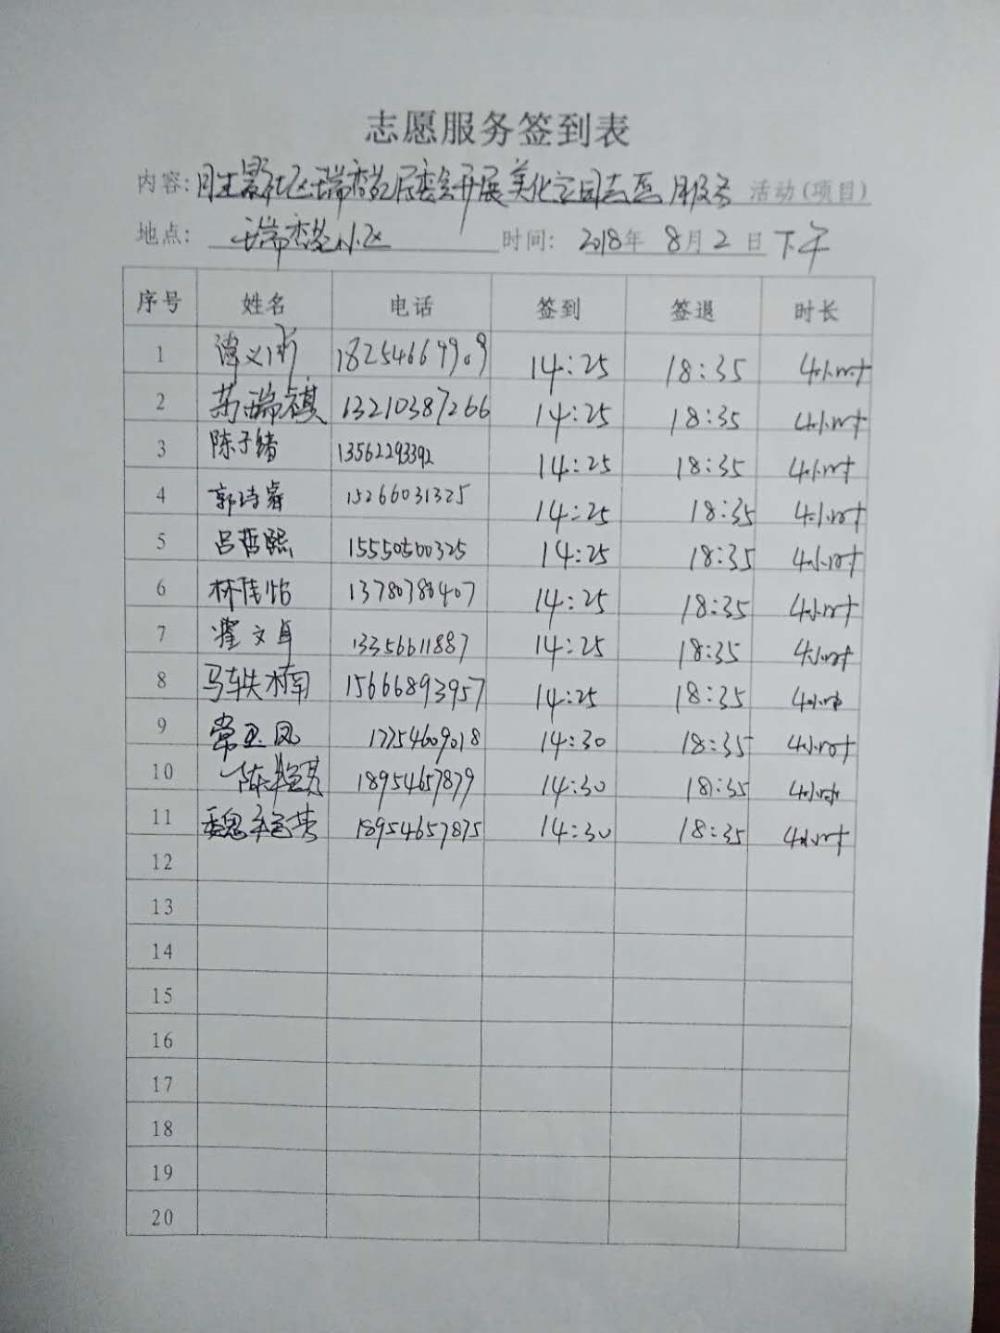 志愿服务签到表
内容: 社区瑞香苑居委会开展美化家园志愿服务 活动(项目)
地点: 瑞香苑小区 时间: 2018年 8月 2日 下午
序号 姓名 电话 签到 签退 时长
1 谭义 14:25 18:35 4小时
2 瑞祺 13210387266 14:25 18:35 4小时
3 陈子绪 13562293392 14:25 18:35 4小时
4 郭诗睿 15266031325 14:25 18:35 4小时
5 吕哲熙 15550560325 14:25 18:35 4小时
6 林佳怡 13780780407 14:25 18:35 4小时
7 翟文卓 13356611887 14:25 18:35 4小时
8 马轶楠 15666893957 14:25 18:35 4小时
9 常玉凤 17754609018 14:30 18:35 4小时
10 陈 18954657879 14:30 18:35 4小时
11 魏 18954657875 14:30 18:35 4小时
12
13
14
15
16
17
18
19
20